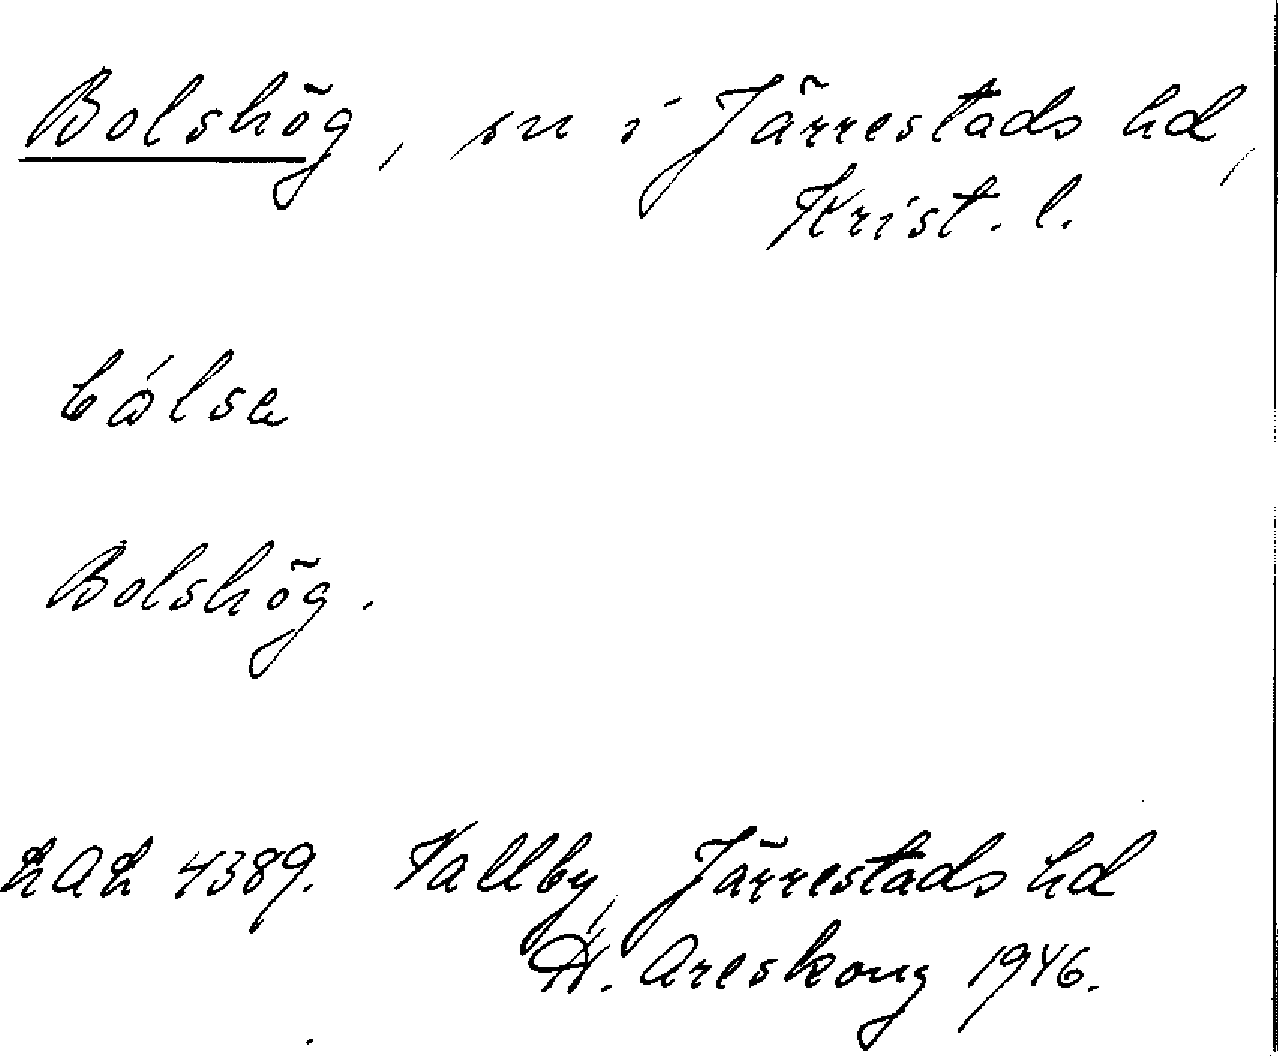 Bolshög, sn i Järrestads hd,
Krist. l.
bålsa
Bolshög.
LAL 4389. Vallby, Järrestads hd
H. Areskoug 1946.